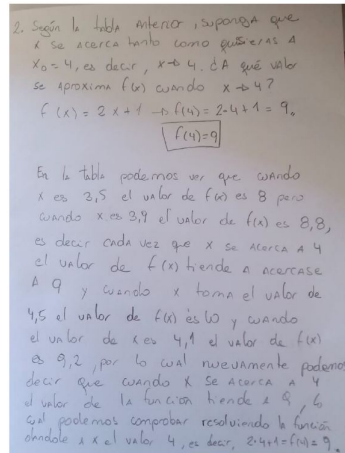 2. Según la tabla anterior, suponga que
x se acerca tanto como quisieras a
x₀ = 4, es decir, x → 4. ¿A qué valor
se aproxima f(x) cuando x → 4?
f(x) = 2x+1 → f(4) = 2·4+1 = 9.
f(4)=9
En la tabla podemos ver que cuando
x es 3,5 el valor de f(x) es 8 pero
cuando x es 3,9 el valor de f(x) es 8,8,
es decir cada vez que x se acerca a 4
el valor de f(x) tiende a acercase
a 9 y cuando x toma el valor de
4,5 el valor de f(x) es 10 y cuando
el valor de x es 4,1 el valor de f(x)
es 9,2, por lo cual nuevamente podemos
decir que cuando x se acerca a 4
el valor de la funcion tiende a 9, lo
cual podemos comprobar resolviendo la función
dandole a x el valor 4, es decir, 2·4+1=f(4)=9.